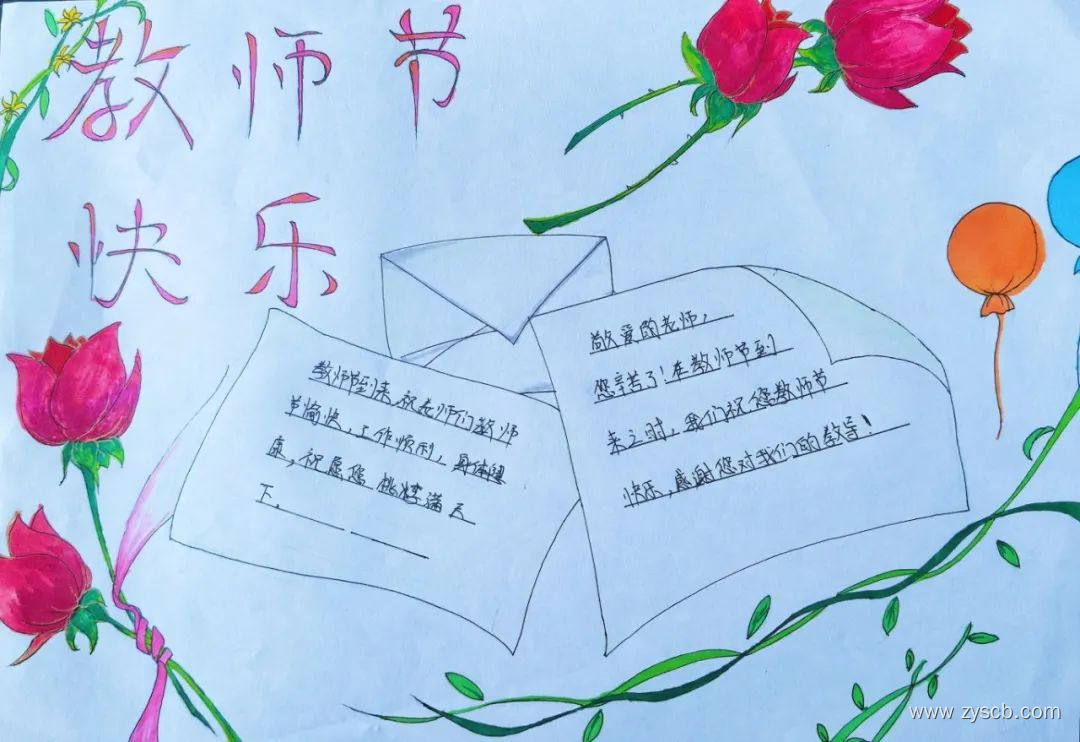 教师节
快乐
教师节到来,祝老师们教师
节愉快,工作顺利,身体健
康,祝愿您 桃李满天
下.
敬爱的老师,
您辛苦了!在教师节到
来之时,我们祝您教师节
快乐,感谢您对我们的教导!
www.zyscb.com